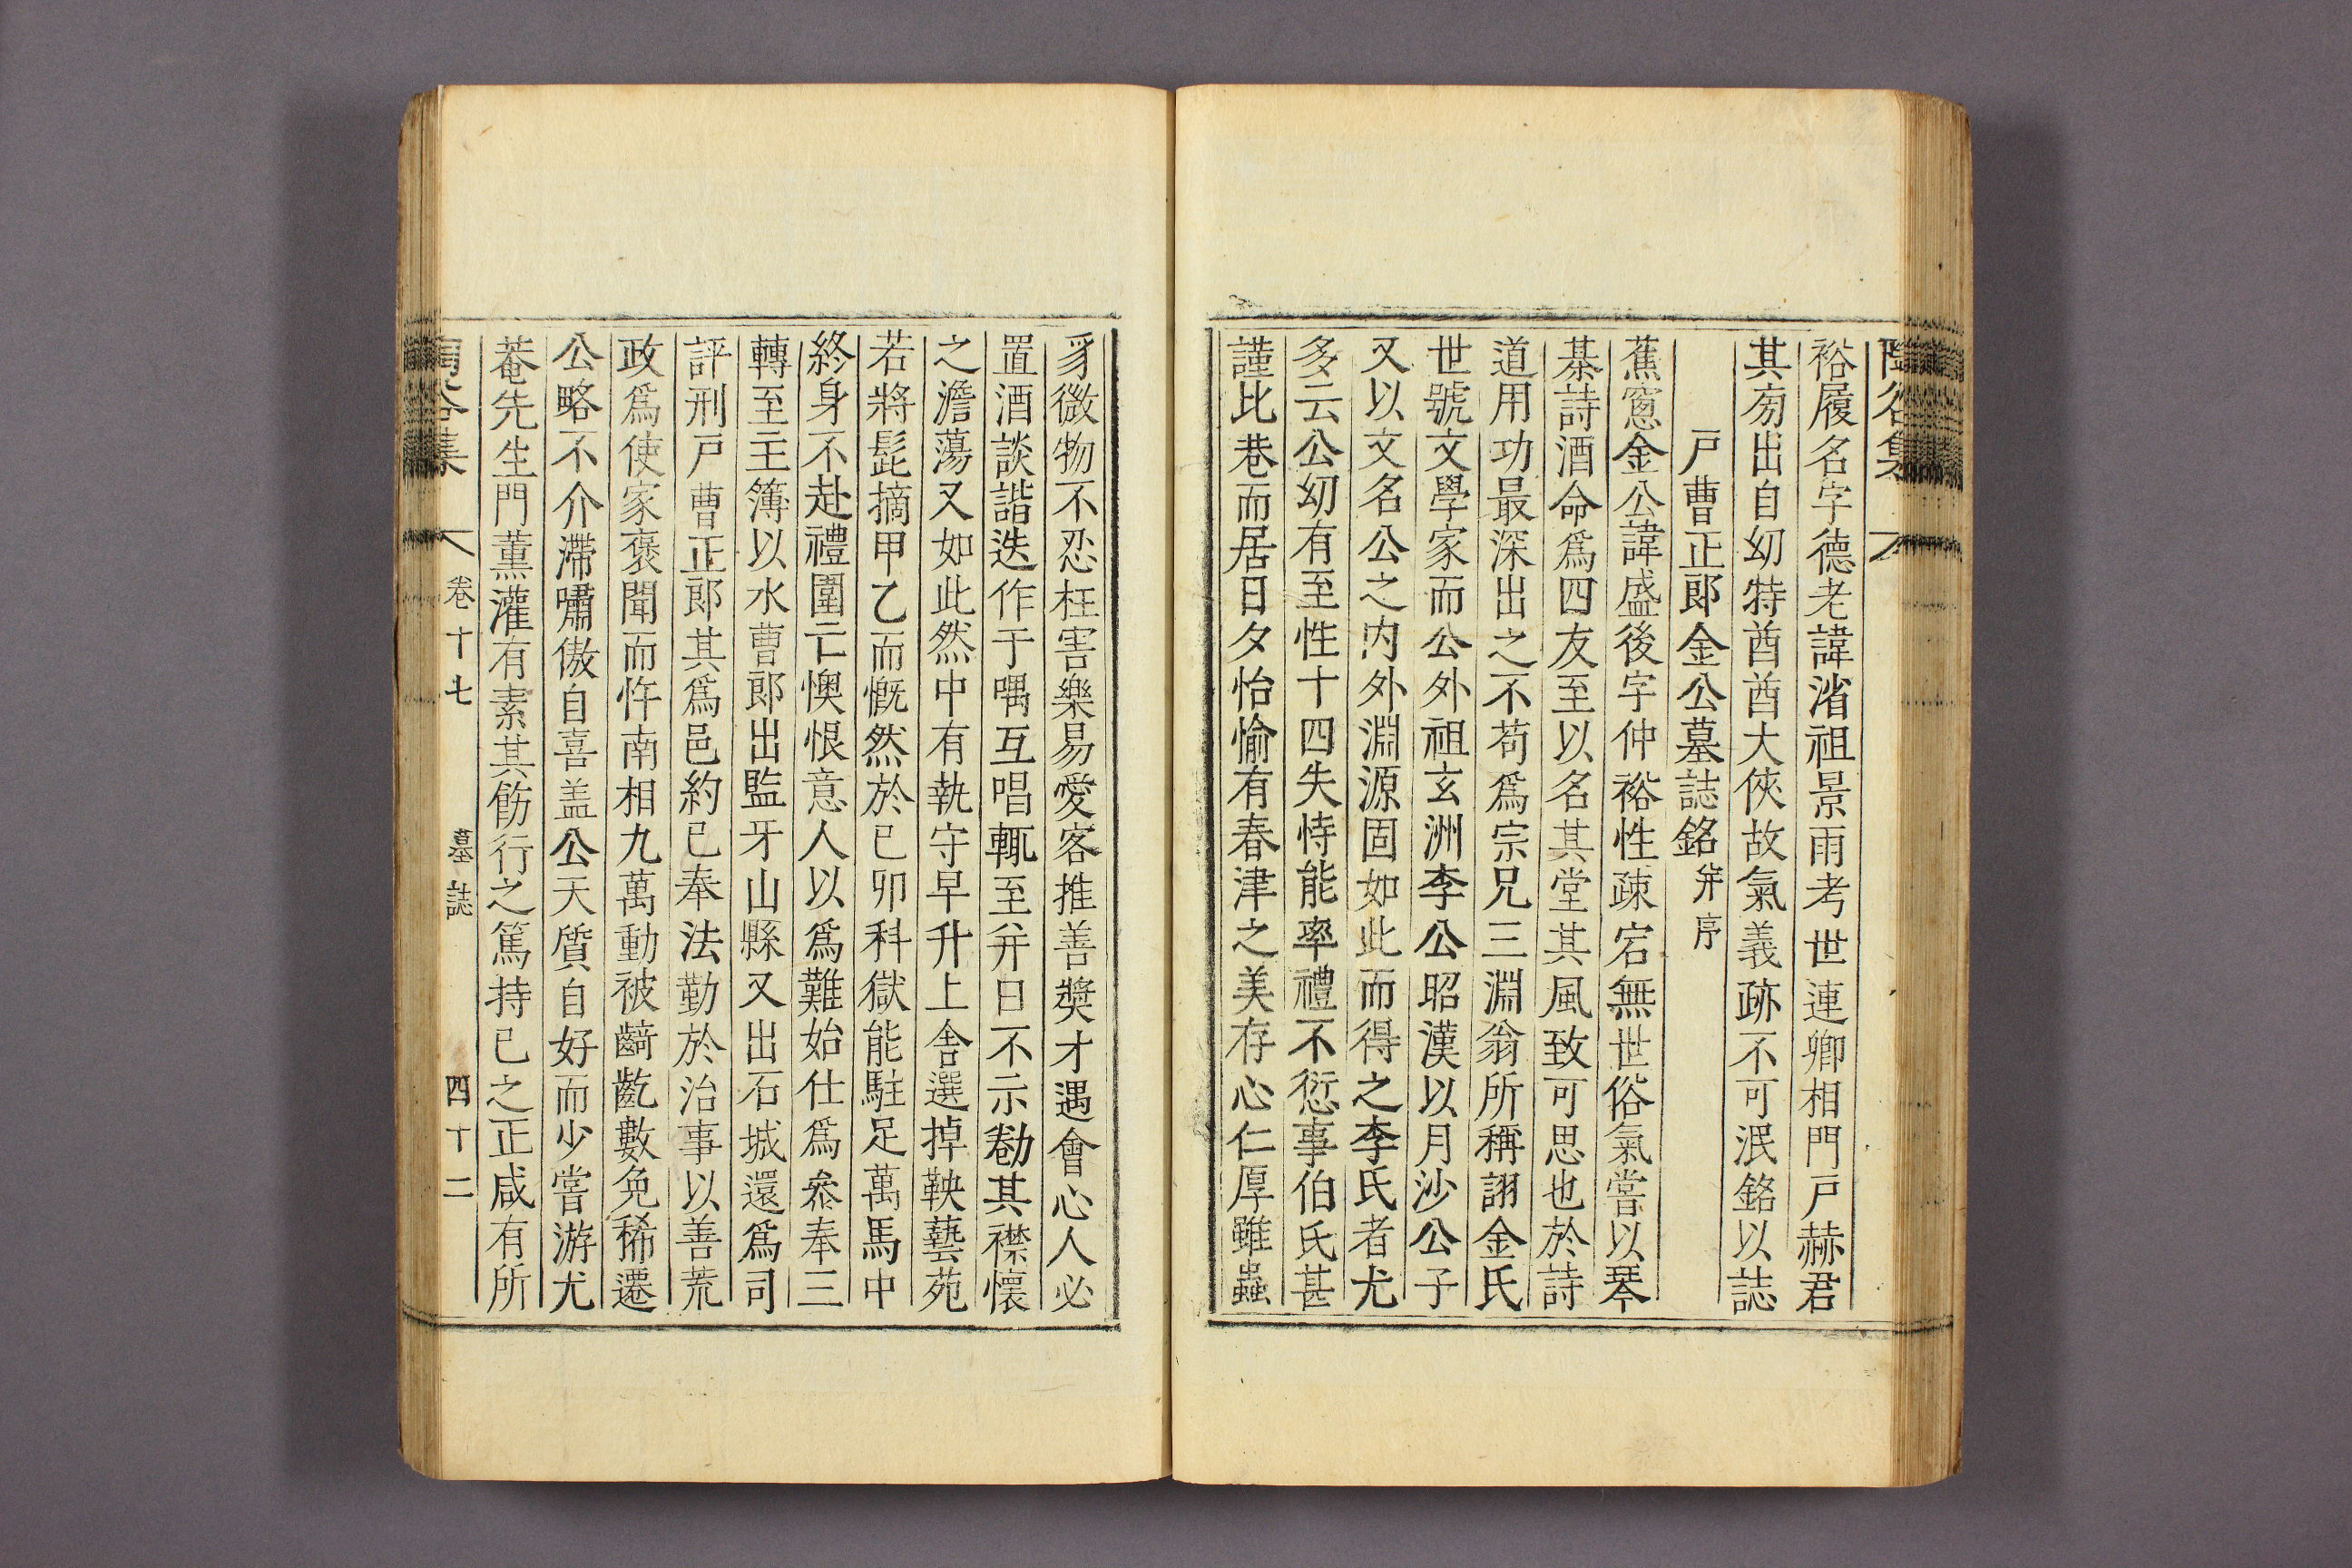 裕履名字德老諱渻祖景雨考世連卿相門戶赫君
其旁出自幼特酋酋大俠故氣義跡不可泯銘以誌
戶曹正郎金公墓誌銘 并序
蕉窓金公諱盛後字仲裕性疎宕無世俗氣嘗以琴
棊詩酒命爲四友至以名其堂其風致可思也於詩
道用功最深出之不苟爲宗兄三淵翁所稱詡金氏
世號文學家而公外祖玄洲李公昭漢以月沙公子
又以文名公之內外淵源固如此而得之李氏者尤
多云公幼有至性十四失恃能率禮不愆事伯氏甚
謹比巷而居日夕怡愉有春津之美存心仁厚雖蟲
豸微物不忍枉害樂易愛客推善奬才遇會心人必
置酒談諧迭作于喁互唱輒至并日不示勌其襟懷
之澹蕩又如此然中有執守早升上舍選掉鞅藝苑
若將髭摘甲乙而慨然於己卯科獄能駐足萬馬中
終身不赴禮圍亡懊恨意人以爲難始仕爲叅奉三
轉至主簿以水曹郎出監牙山縣又出石城還爲司
評刑戶曹正郎其爲邑約己奉法勤於治事以善荒
政爲使家褒聞而忤南相九萬動被齮齕數免稀遷
公略不介滯嘯傲自喜盖公天質自好而少嘗游尤
菴先生門薰灌有素其飭行之篤持己之正咸有所
陶谷集 卷十七 墓誌 四十二